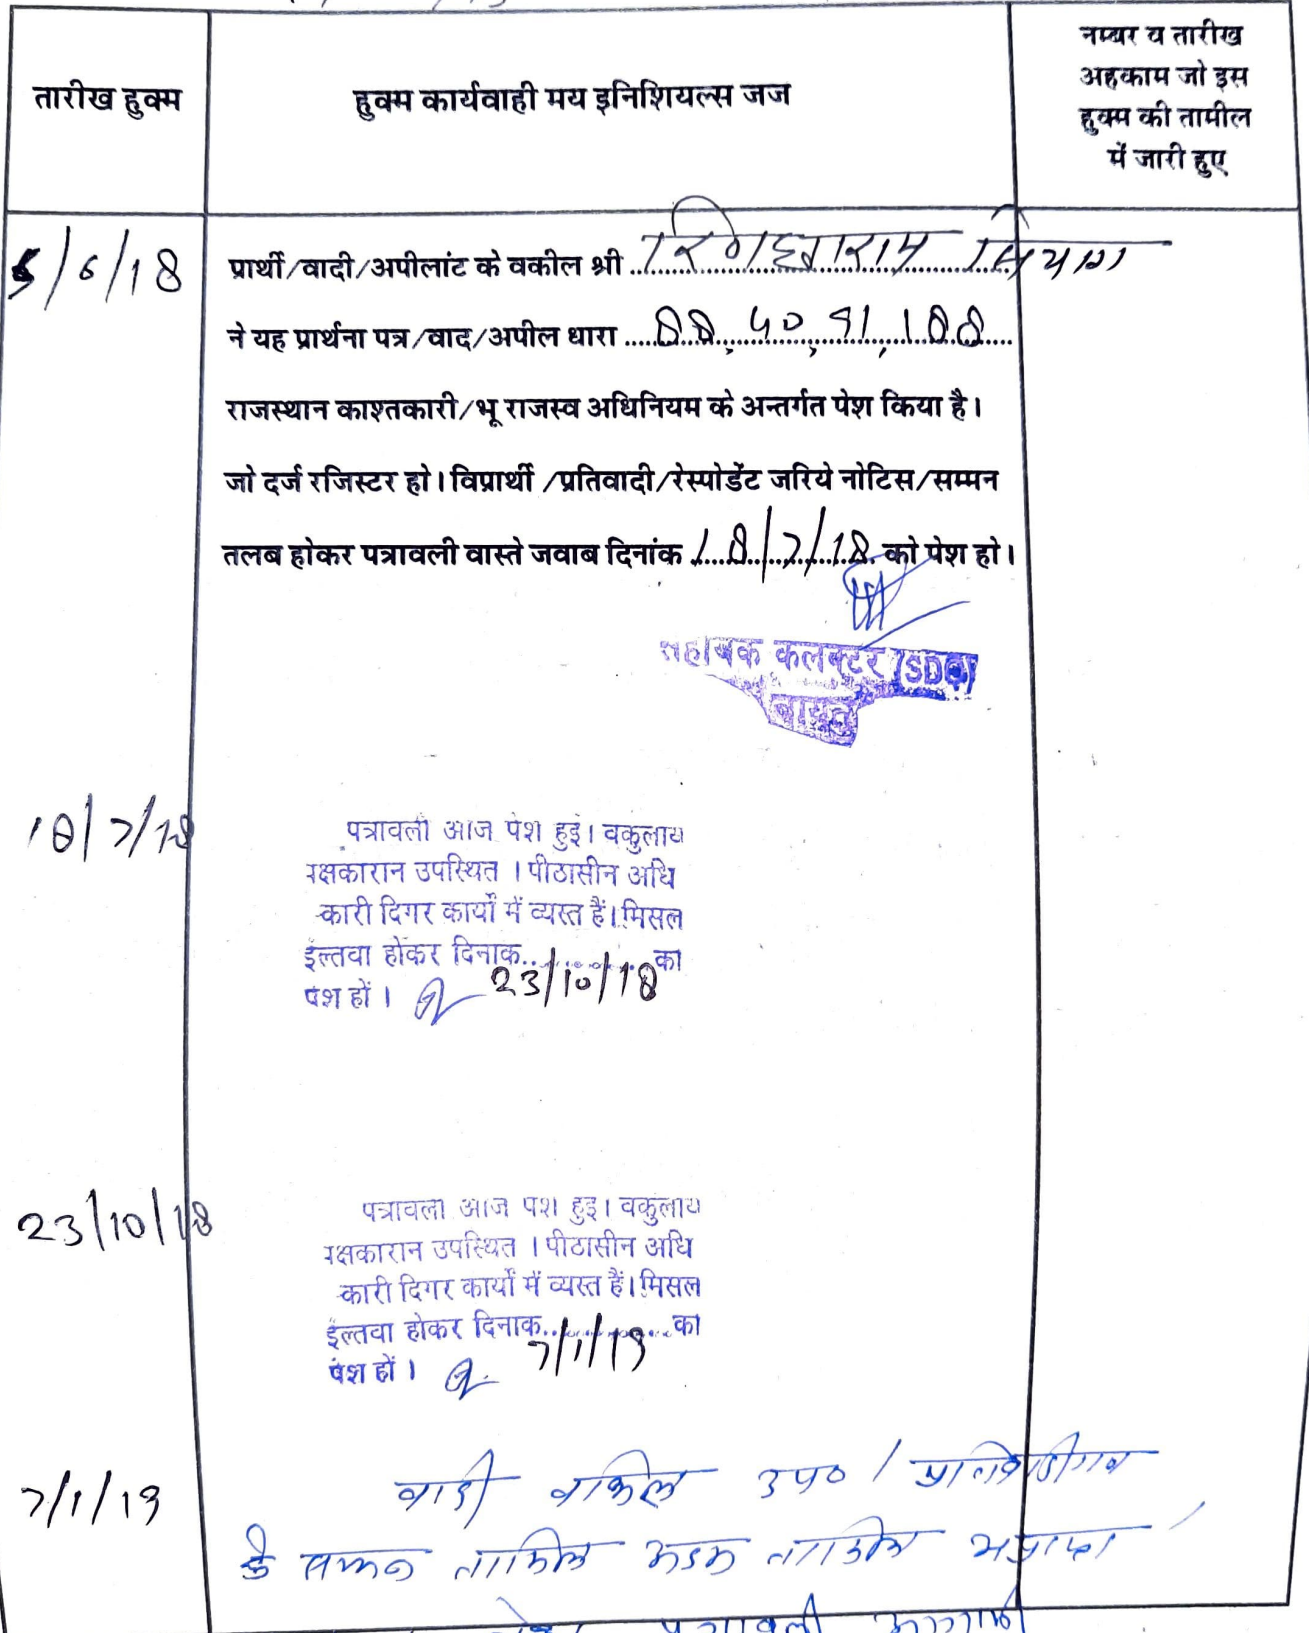 तारीख हुक्म
हुक्म कार्यवाही मय इनिशियल्स जज
नम्बर व तारीख
अहकाम जो इस
हुक्म की तामील
में जारी हुए
5/6/18
प्रार्थी/वादी/अपीलांट के वकील श्री सियाग
ने यह प्रार्थना पत्र/वाद/अपील धारा 88, 40, 91, 188
राजस्थान काश्तकारी/भू राजस्व अधिनियम के अन्तर्गत पेश किया है।
जो दर्ज रजिस्टर हो। विप्रार्थी /प्रतिवादी/रेस्पोडेंट जरिये नोटिस/सम्मन
तलब होकर पत्रावली वास्ते जवाब दिनांक 18/7/18 को पेश हो।
सहायक कलक्टर (SDO)
बायतु
18/7/18
पत्रावली आज पेश हुई। वकुलाय
पक्षकारान उपस्थित । पीठासीन अधि
कारी दिगर कार्यों में व्यस्त हैं। मिसल
ईल्तवा होकर दिनाक 23/10/18 को
पेश हों ।
23/10/18
पत्रावली आज पेश हुई। वकुलाय
पक्षकारान उपस्थित । पीठासीन अधि
कारी दिगर कार्यों में व्यस्त हैं। मिसल
ईल्तवा होकर दिनाक 7/1/19 को
पेश हों ।
7/1/19
वादी वकिल उप० / प्रतिवादीगण
के सम्मन तामिल तामिल
पत्रावली